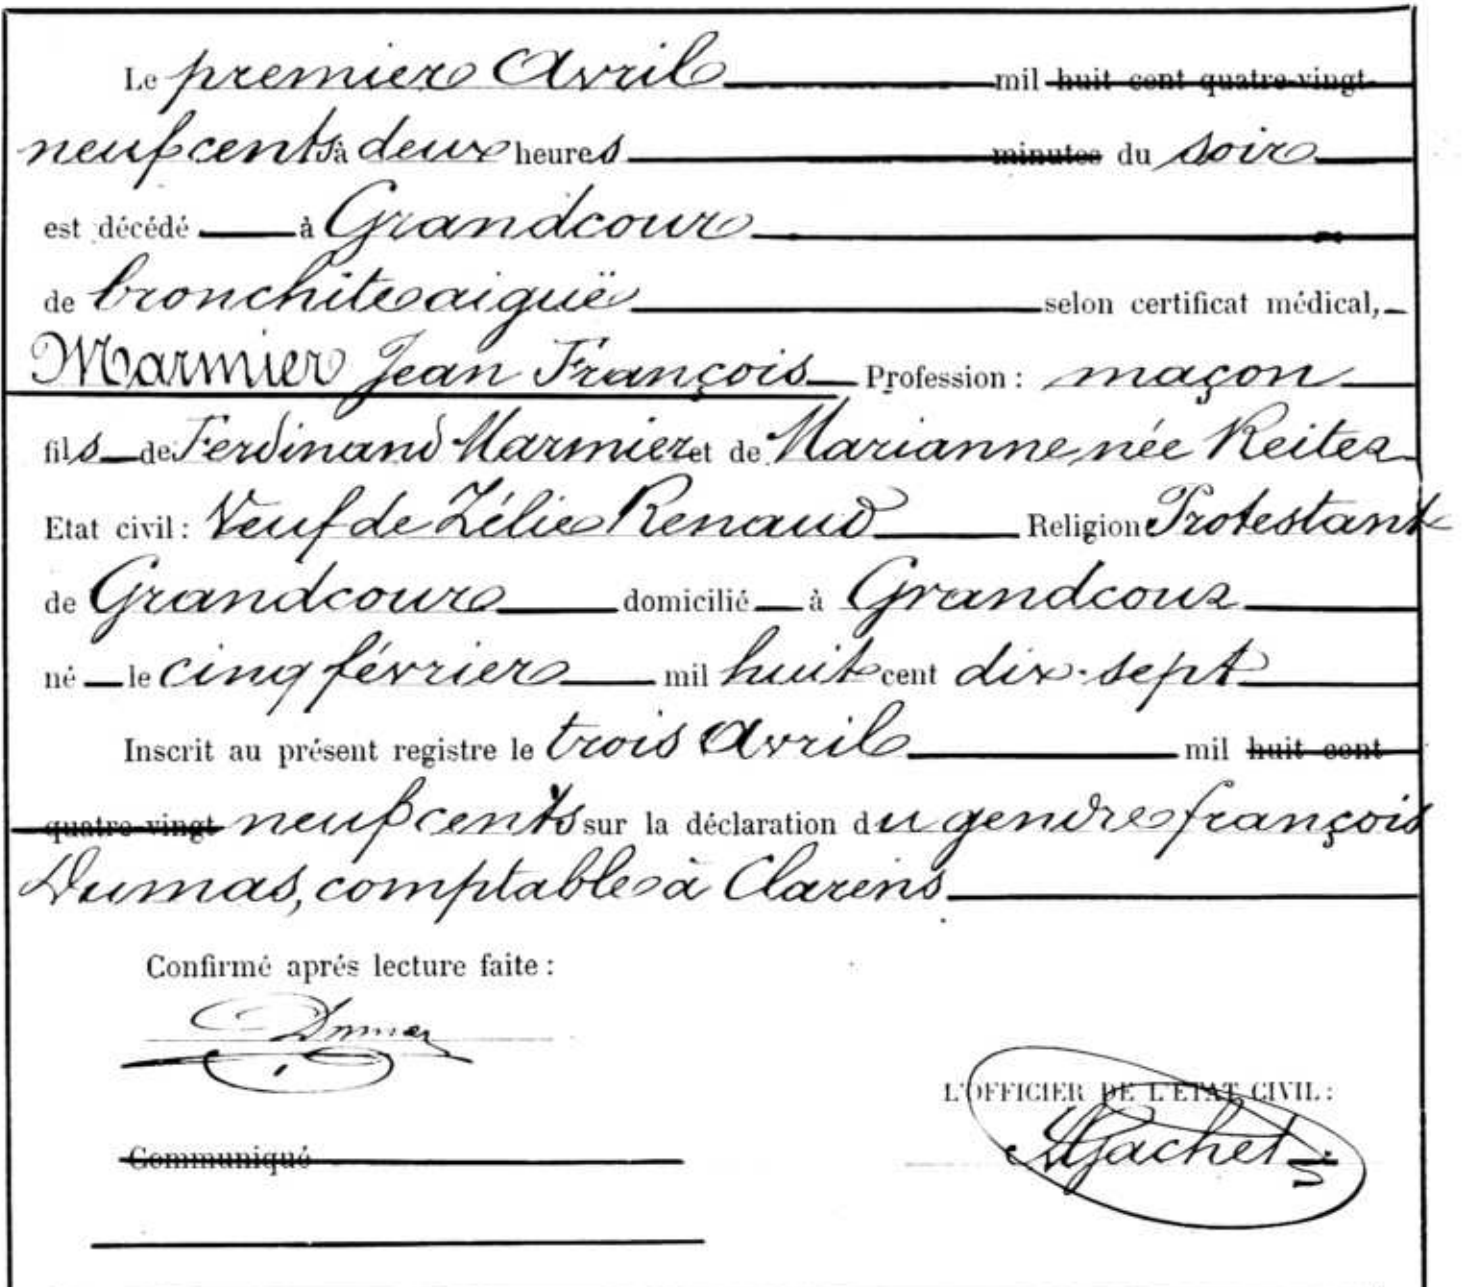 Le premier Avril mil huit cent quatre-vingt-
neuf cents à deux heures minutes du soir
est décédé à Grandcour
de bronchite aiguë selon certificat médical,
Marmier Jean François Profession : maçon
fils de Ferdinand Marmier et de Marianne née Reiter
Etat civil : Veuf de Zélie Renaud Religion Protestant
de Grandcour domicilié à Grandcour
né le cinq février mil huit cent dix-sept
Inscrit au présent registre le trois Avril mil huit cent
quatre-vingt neuf cents sur la déclaration du gendre françois
Dumas, comptable à Clarens
Confirmé aprés lecture faite :
Dumas
L'OFFICIER DE L'ETAT CIVIL :
Gachet
Communiqué